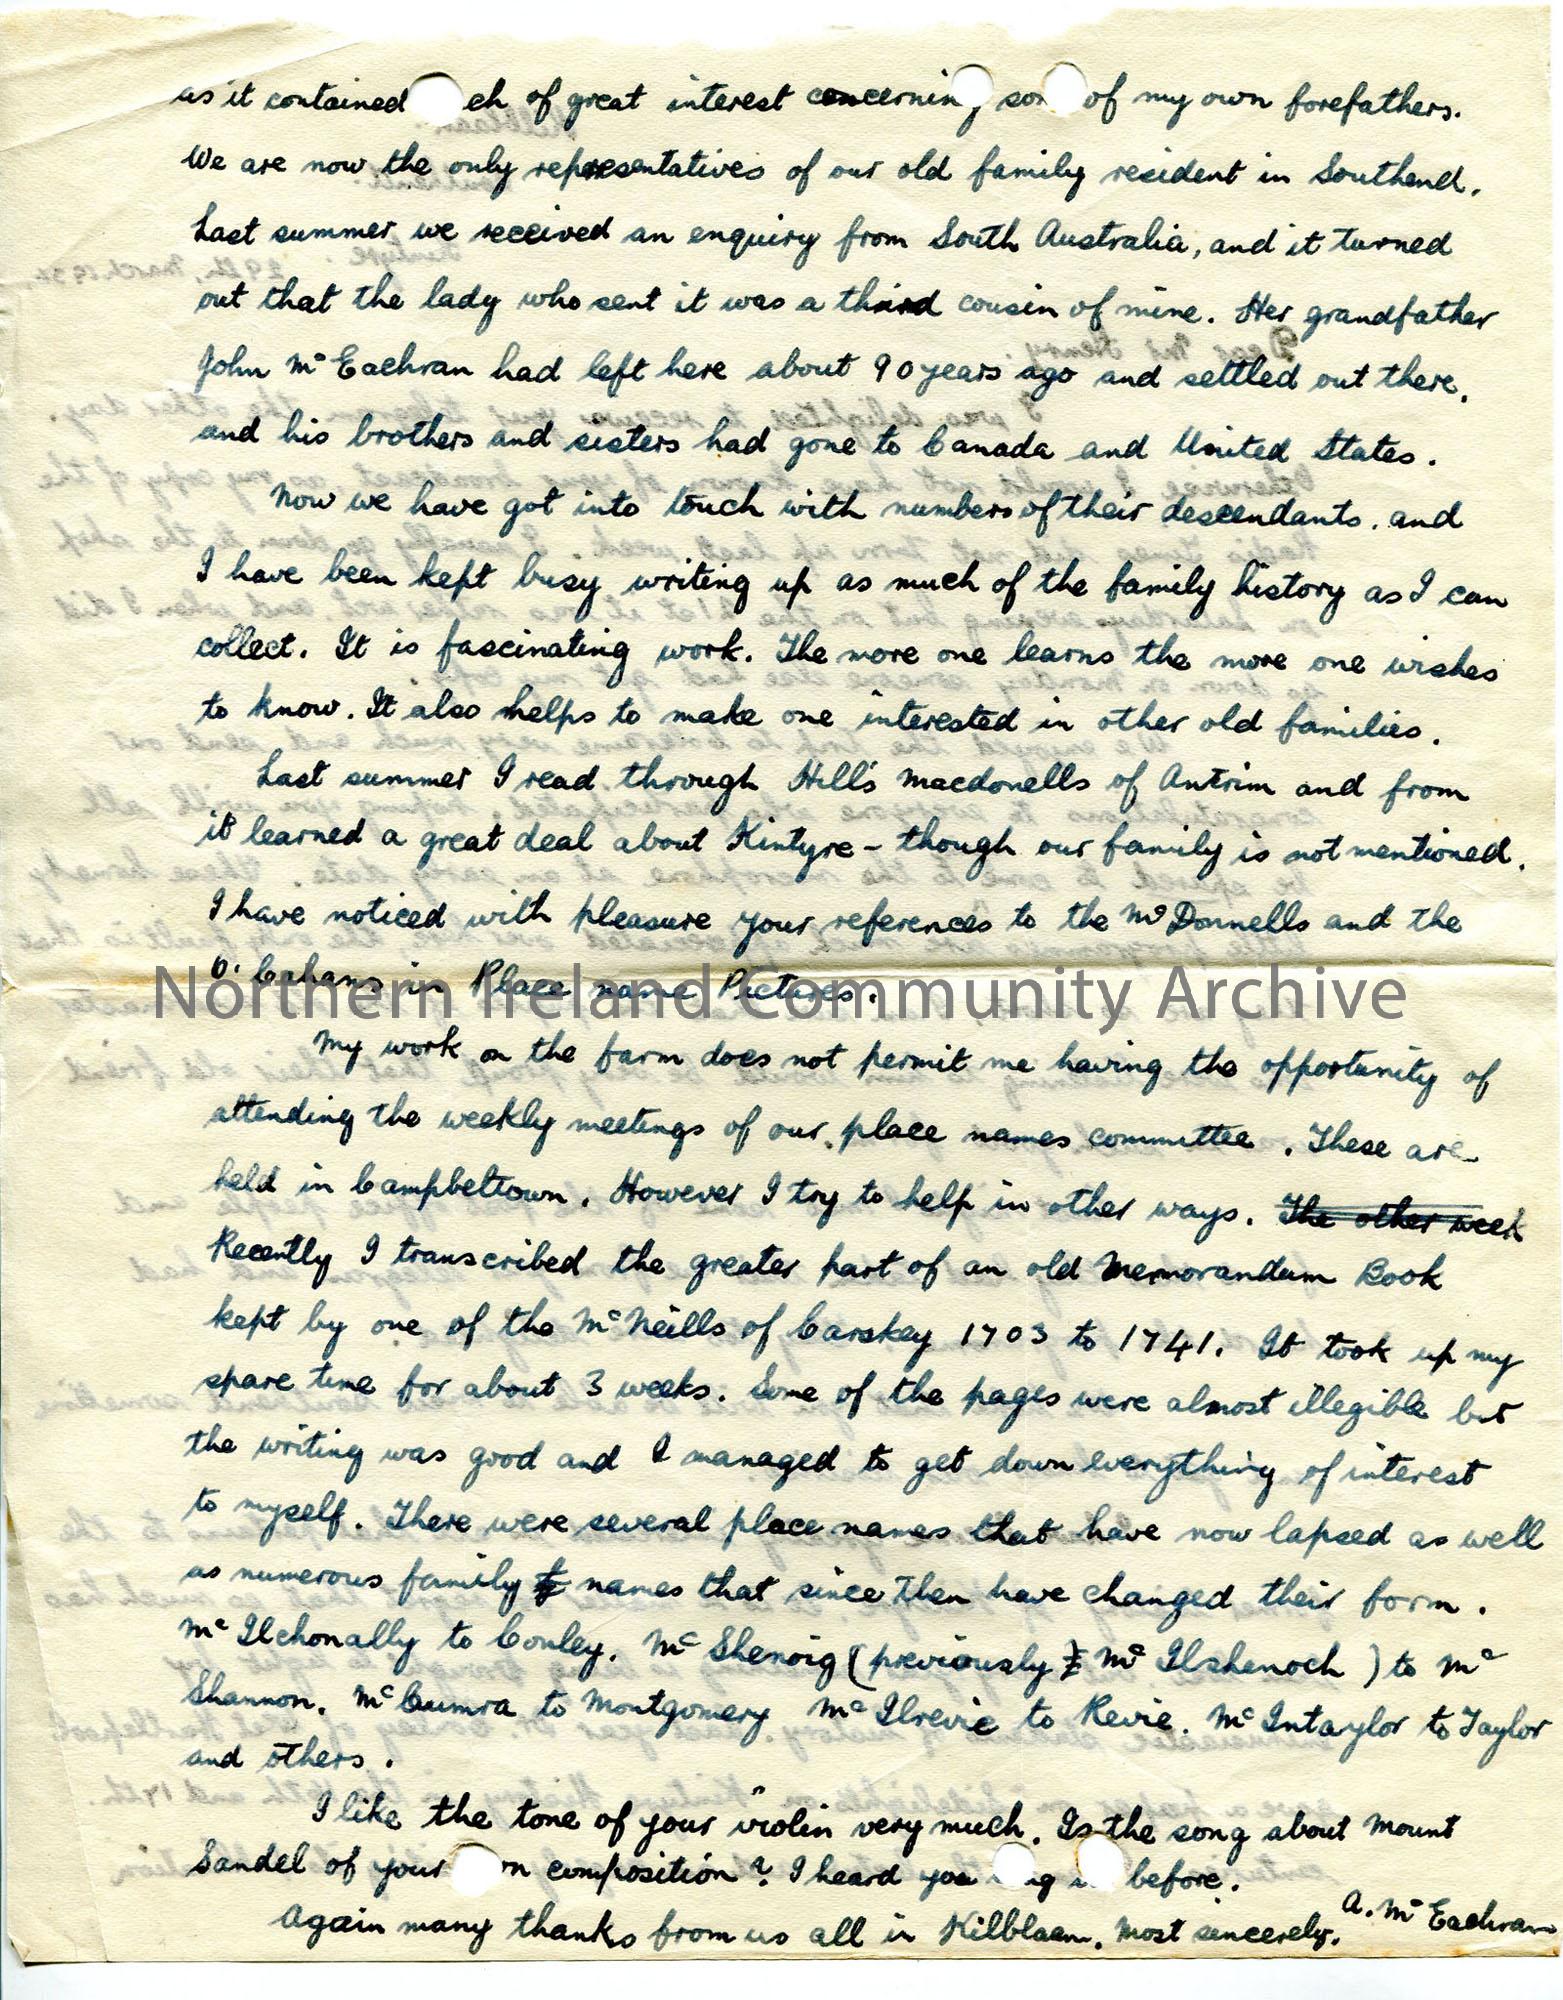 as it contained ch of great interest concerning so of my own forefathers.
We are now the only representatives of our old family resident in Southend.
Last summer we received an enquiry from South Australia, and it turned
out that the lady who sent it was a third cousin of mine. Her grandfather
John McEachran had left here about 90 years ago and settled out there,
and his brothers and sisters had gone to Canada and United States.
Now we have got into touch with numbers of their descendants. and
I have been kept busy writing up as much of the family history as I can
collect. It is fascinating work. The more one learns the more one wishes
to know. It also helps to make one interested in other old families.
Last summer I read through Hill's Macdonells of Antrim and from
it learned a great deal about Kintyre - though our family is not mentioned.
I have noticed with pleasure your references to the McDonnells and the
O'Cahans in Place name Pictures.
Northern Ireland Community Archive
My work on the farm does not permit me having the opportunity of
attending the weekly meetings of our place names committee. These are
held in Campbeltown. However I try to help in other ways. The other week
Recently I transcribed the greater part of an old Memorandum Book
kept by one of the McNeills of Carskey 1703 to 1741. It took up my
spare time for about 3 weeks. Some of the pages were almost illegible but
the writing was good and I managed to get down everything of interest
to myself. There were several place names that have now lapsed as well
as numerous family names that since then have changed their form.
McIlchonally to Conley. McShenoig (previously McIlshenoch) to Mc
Shannon. McCumra to Montgomery McIlrevie to Revie. McIntaylor to Taylor
and others.
I like the tone of your violin very much. Is the song about Mount
Sandel of your n composition? I heard you ng before.
Again many thanks from us all in Kilblaan. Most sincerely. A. McEachran